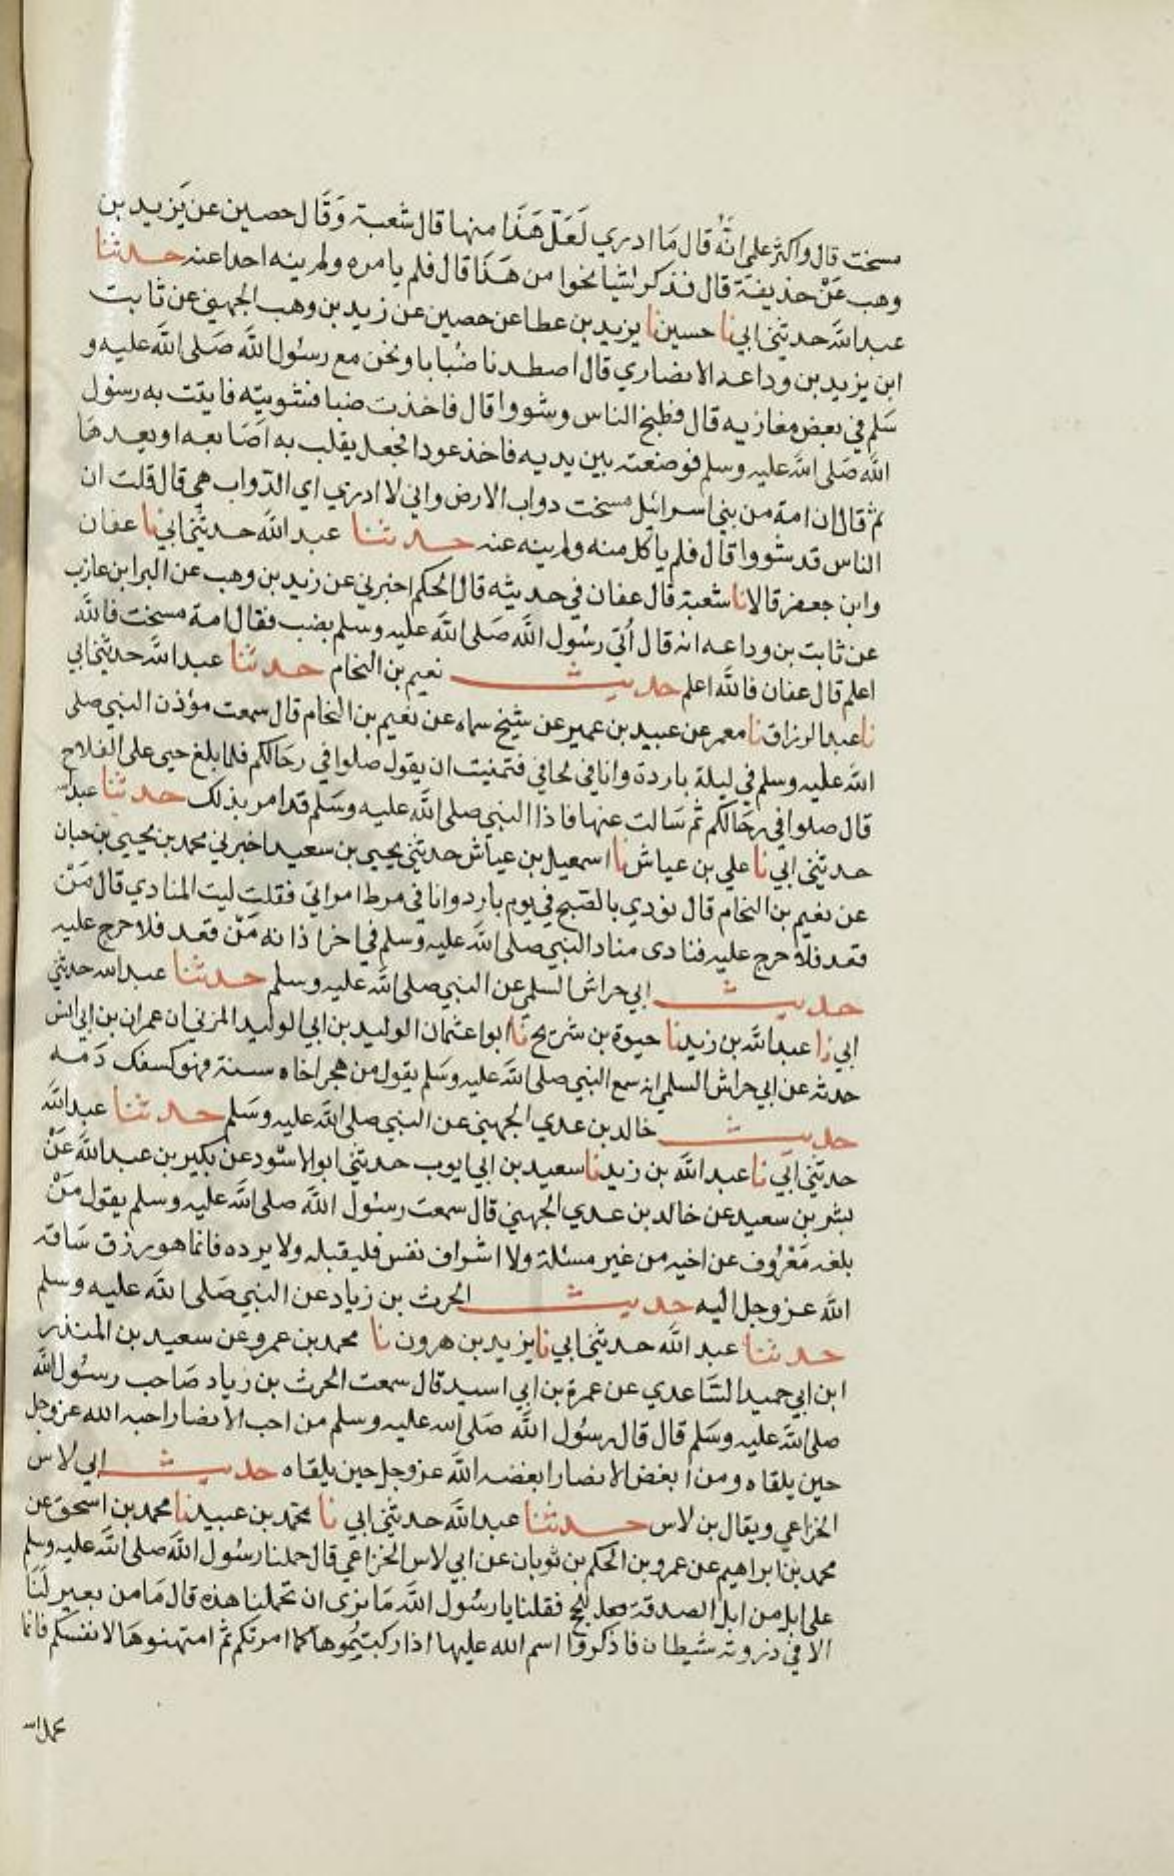 مسخت قال واكثر على انه قال ما ادري لعل هذا منها قال شعبة وقال حصين عن يزيد بن
وهب عن حذيفة قال فذكر شيا نحوا من هذا قال فلم يامره ولم ينه احدا عنه حدثنا
عبد الله حدثني ابي نا حسين نا يزيد بن عطا عن حصين عن زيد بن وهب الجهني عن ثابت
ابن يزيد بن وداعه الانصاري قال اصطدنا ضبابا ونحن مع رسول الله صلى الله عليه و
سلم في بعض مغازيه قال فطبخ الناس وشووا قال فاخذت ضبا فشويته فاتيت به رسول
الله صلى الله عليه وسلم فوضعته بين يديه فاخذ عودا فجعل يقلب به اصابعه او يعدها
ثم قال ان امة من بني اسرائيل مسخت دواب الارض واني لا ادري اي الدواب هي قال قلت ان
الناس قد شووا قال فلم ياكل منه ولم ينه عنه حدثنا عبد الله حدثني ابي نا عفان
وابن جعفر قالا نا شعبة قال عفان في حديثه قال الحكم اخبرني عن زيد بن وهب عن البرا ابن عازب
عن ثابت بن وداعه انه قال أتي رسول الله صلى الله عليه وسلم بضب فقال امة مسخت فالله
اعلم قال عفان فالله اعلم حديث نعيم بن النخام حدثنا عبد الله حدثني ابي
نا عبد الرزاق نا معمر عن عبيد بن عمير عن شيخ سماه عن نعيم بن النحام قال سمعت مؤذن النبي صلى
الله عليه وسلم في ليلة باردة وانا في لحافي فتمنيت ان يقول صلوا في رحالكم فلما بلغ حيى على الفلاح
قال صلوا في رحالكم ثم سالت عنها فاذا النبي صلى الله عليه وسلم قد امر بذلك حدثنا عبد الله
حدثني ابي نا علي بن عياش نا اسمعيل بن عياش حدثني يحيى بن سعيد اخبرني محمد بن يحيى بن حبان
عن نعيم بن النحام قال نودي بالصبح في يوم بارد وانا في مرط امراتي فقلت ليت المنادي قال من
قعد فلا حرج عليه فنادى مناد النبي صلى الله عليه وسلم في اخر اذانه من قعد فلا حرج عليه
حديث ابي حراش السلمي عن النبي صلى الله عليه وسلم حدثنا عبد الله حدثني
ابي نا عبد الله بن زيد نا حيوة بن شريح نا ابو اعثمان الوليد بن ابي الوليد المزني ان عمران بن ابي انس
حدثه عن ابي حراش السلمي انه سمع النبي صلى الله عليه وسلم يقول من هجر اخاه سنة فهو كسفك دمه
حديث خالد بن عدي الجهني عن النبي صلى الله عليه وسلم حدثنا عبد الله
حدثني ابي نا عبد الله بن زيد نا سعيد بن ابي ايوب حدثني ابو الاسود عن بكير بن عبد الله عن
بشر بن سعيد عن خالد بن عدي الجهني قال سمعت رسول الله صلى الله عليه وسلم يقول من
بلغه معروف عن اخيه من غير مسئلة ولا اشراف نفس فليقبله ولا يرده فانما هو رزق ساقه
الله عز وجل اليه حديث الحرث بن زياد عن النبي صلى الله عليه وسلم
حدثنا عبد الله حدثني ابي نا يزيد بن هرون نا محمد بن عمرو عن سعيد بن المنذر
ابن ابي حميد الساعدي عن عمرة بن ابي اسيد قال سمعت الحرث بن زياد صاحب رسول الله
صلى الله عليه وسلم قال قال رسول الله صلى الله عليه وسلم من احب الانصار احبه الله عز وجل
حين يلقاه ومن ابغض الانصار ابغضه الله عز وجل حين يلقاه حديث ابي لاس
الخزاعي ويقال بن لاس حدثنا عبد الله حدثني ابي نا محمد بن عبيد نا محمد بن اسحق عن
محمد بن ابراهيم عن عمرو بن الحكم بن ثوبان عن ابي لاس الخزاعي قال حملنا رسول الله صلى الله عليه وسلم
على ابل من ابل الصدقة فقلنا يا رسول الله ما نرى ان تحملنا هذه قال ما من بعير لنا
الا في ذروته شيطان فاذكروا اسم الله عليها اذا ركبتموها كما امرتكم ثم امتهنوها لانفسكم فانما